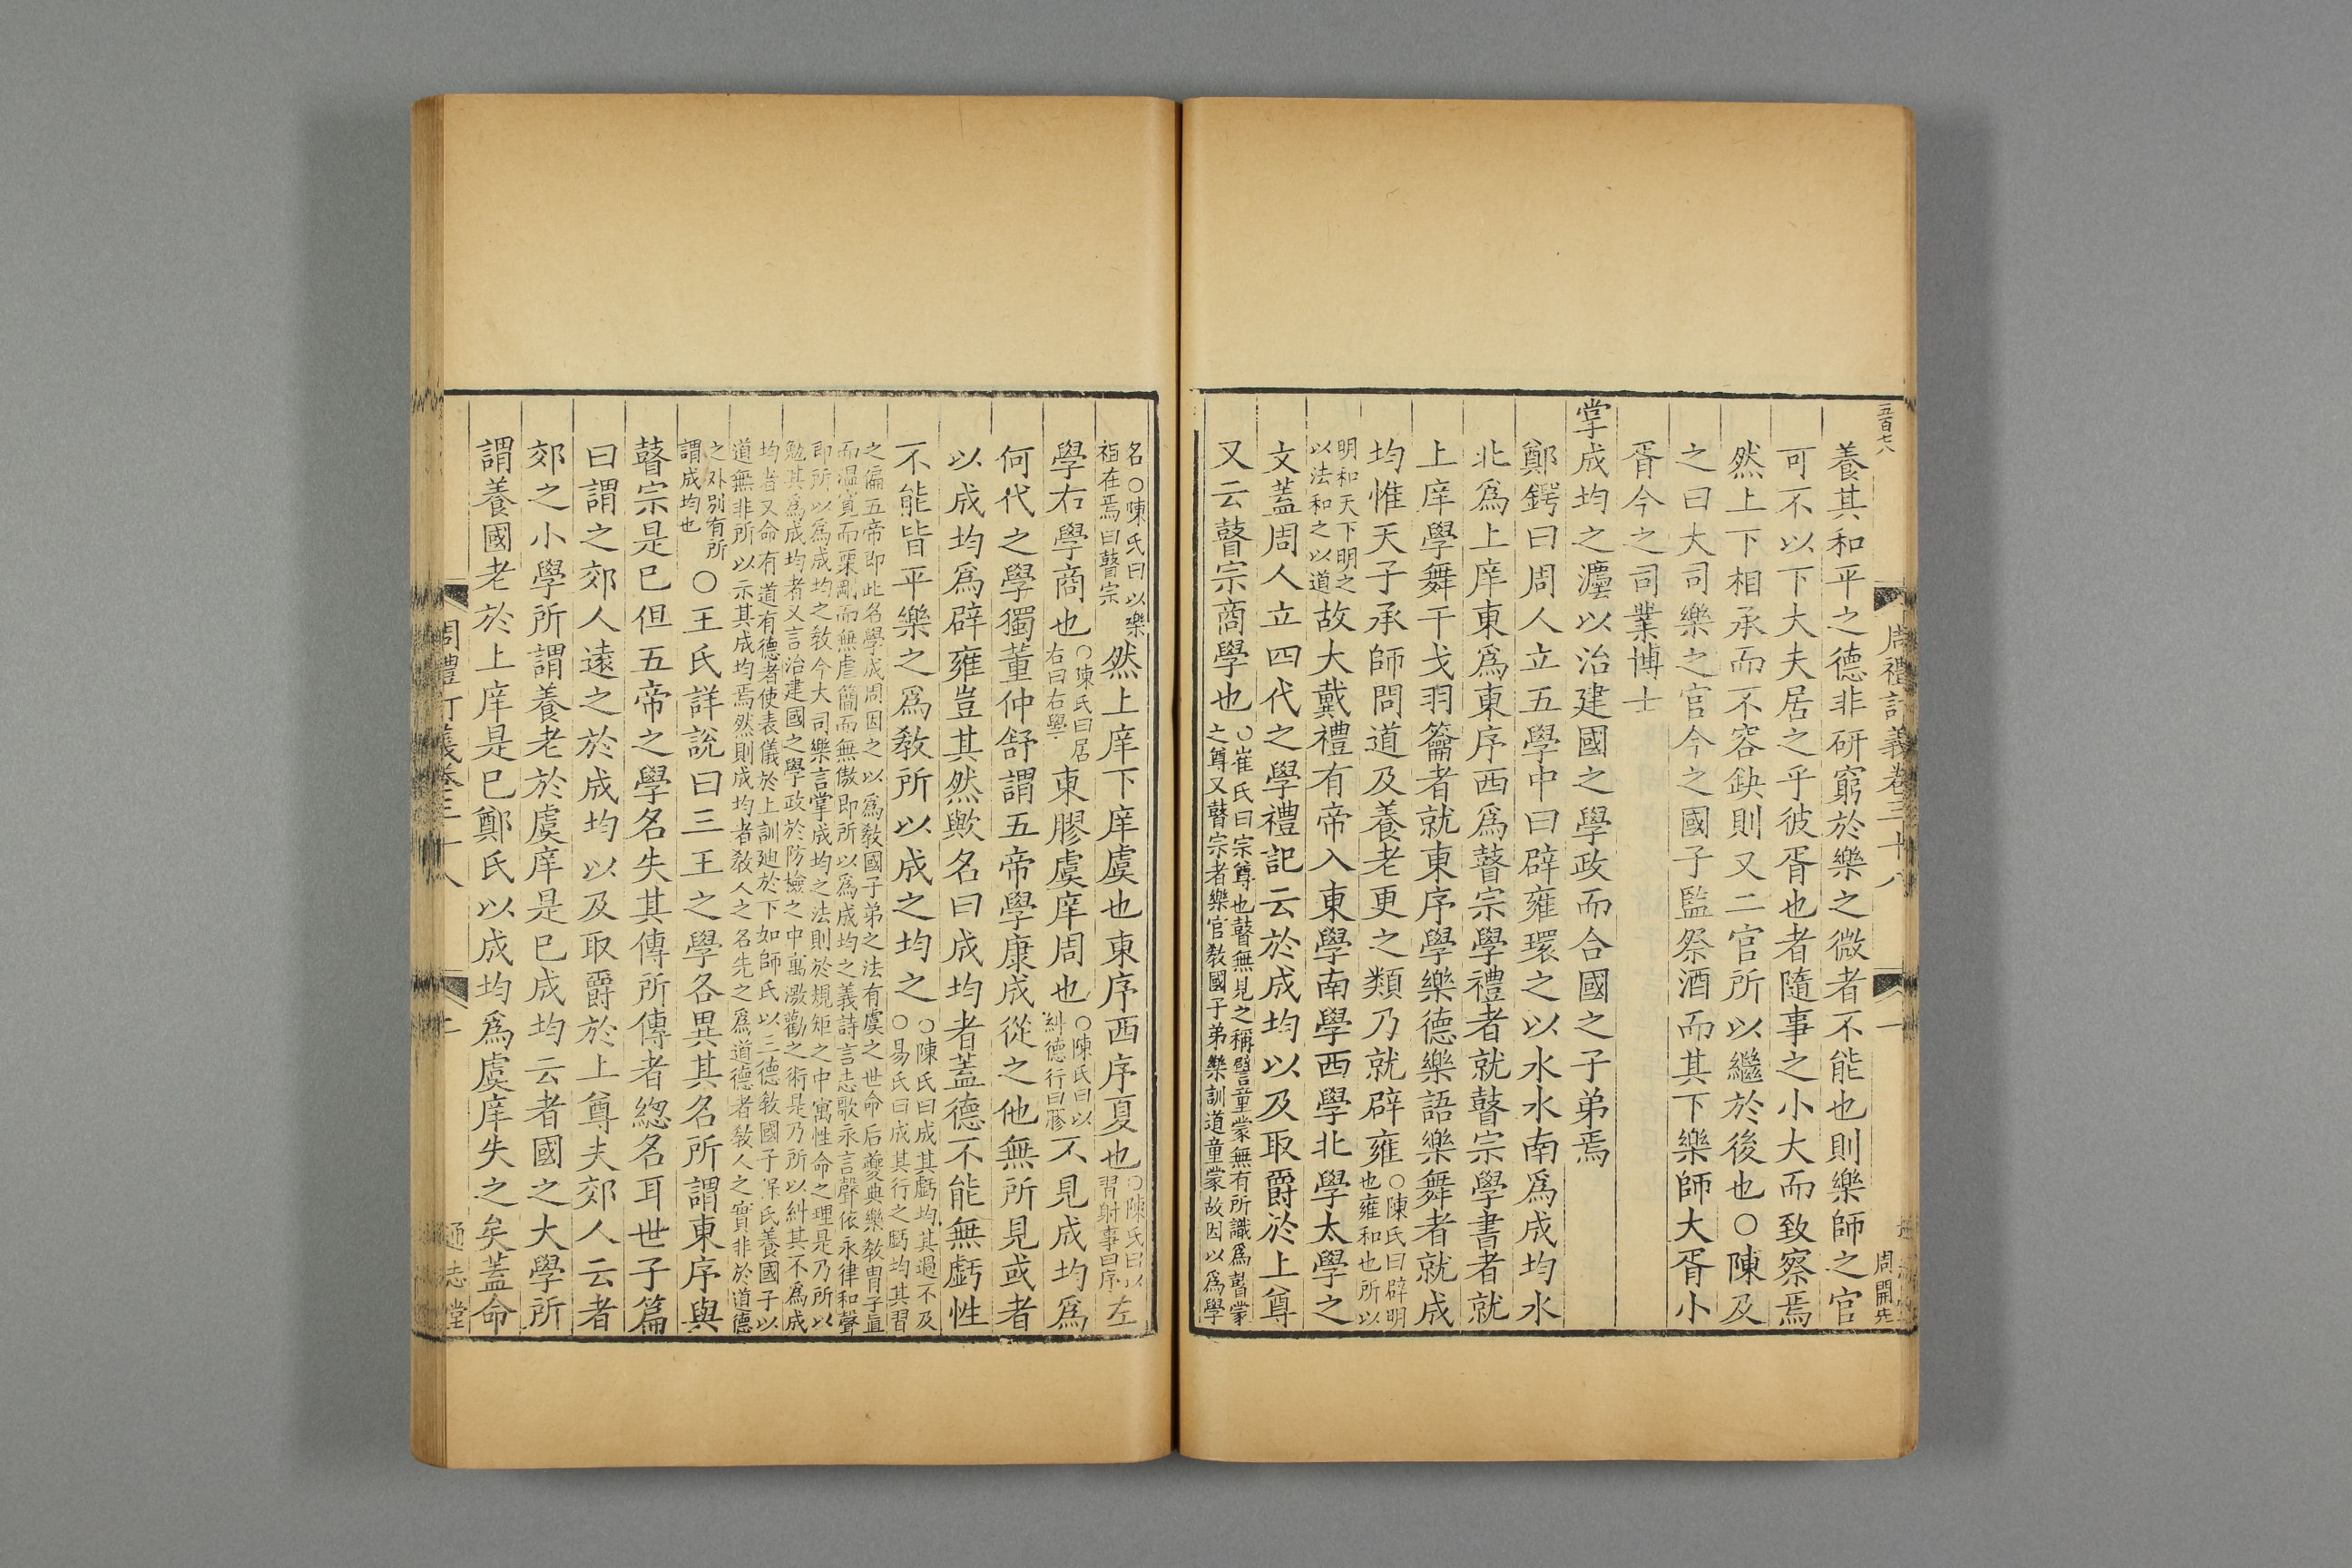 五百七八
周禮訂義卷三十八
一
周開先
養其和平之德非研窮於樂之微者不能也則樂師之官
可不以下大夫居之乎彼胥也者隨事之小大而致察焉
然上下相承而不容缺則又二官所以繼於後也○陳及
之曰大司樂之官今之國子監祭酒而其下樂師大胥小
胥今之司業博士
掌成均之灋以治建國之學政而合國之子弟焉
鄭鍔曰周人立五學中曰辟雍環之以水水南爲成均水
北爲上庠東爲東序西爲瞽宗學禮者就瞽宗學書者就
上庠學舞干戈羽籥者就東序學樂德樂語樂舞者就成
均惟天子承師問道及養老更之類乃就辟雍○陳氏曰辟明
也雍和也所以
明和天下明之
以法和之以道故大戴禮有帝入東學南學西學北學太學之
文蓋周人立四代之學禮記云於成均以及取爵於上尊
又云瞽宗商學也○崔氏曰宗尊也瞽無見之稱譬童蒙無有所識爲瞽蒙
之尊又瞽宗者樂官敎國子弟樂訓道童蒙故因以爲學
名○陳氏曰以樂
祖在焉曰瞽宗然上庠下庠虞也東序西序夏也○陳氏曰以
習射事曰序左
學右學商也○陳氏曰居
右曰右學東膠虞庠周也○陳氏曰以
糾德行曰膠不見成均爲
何代之學獨董仲舒謂五帝學康成從之他無所見或者
以成均爲辟雍豈其然歟名曰成均者蓋德不能無虧性
不能皆平樂之爲敎所以成之均之○陳氏曰成其虧均其過不及
○易氏曰成其行之虧均其習
之偏五帝即此名學成周因之以爲敎國子弟之法有虞之世命后夔典樂敎胄子直
而溫寬而栗剛而無虐簡而無傲即所以爲成均之義詩言志歌永言聲依永律和聲
即所以爲成均之敎今大司樂言掌成均之法則於規矩之中寓性命之理是乃所以
勉其爲成均者又言治建國之學政於防檢之中寓激勸之術是乃所以糾其不爲成
均者又命有道有德者使表儀於上訓廸於下如師氏以三德敎國子保氏養國子以
道無非所以示其成均焉然則成均者敎人之名先之爲道德者敎人之實非於道德
之外別有所
謂成均也○王氏詳說曰三王之學各異其名所謂東序與
瞽宗是已但五帝之學名失其傳所傳者緫名耳世子篇
曰謂之郊人遠之於成均以及取爵於上尊夫郊人云者
郊之小學所謂養老於虞庠是已成均云者國之大學所
謂養國老於上庠是已鄭氏以成均爲虞庠失之矣蓋命
周禮訂義卷三十八
二
通志堂